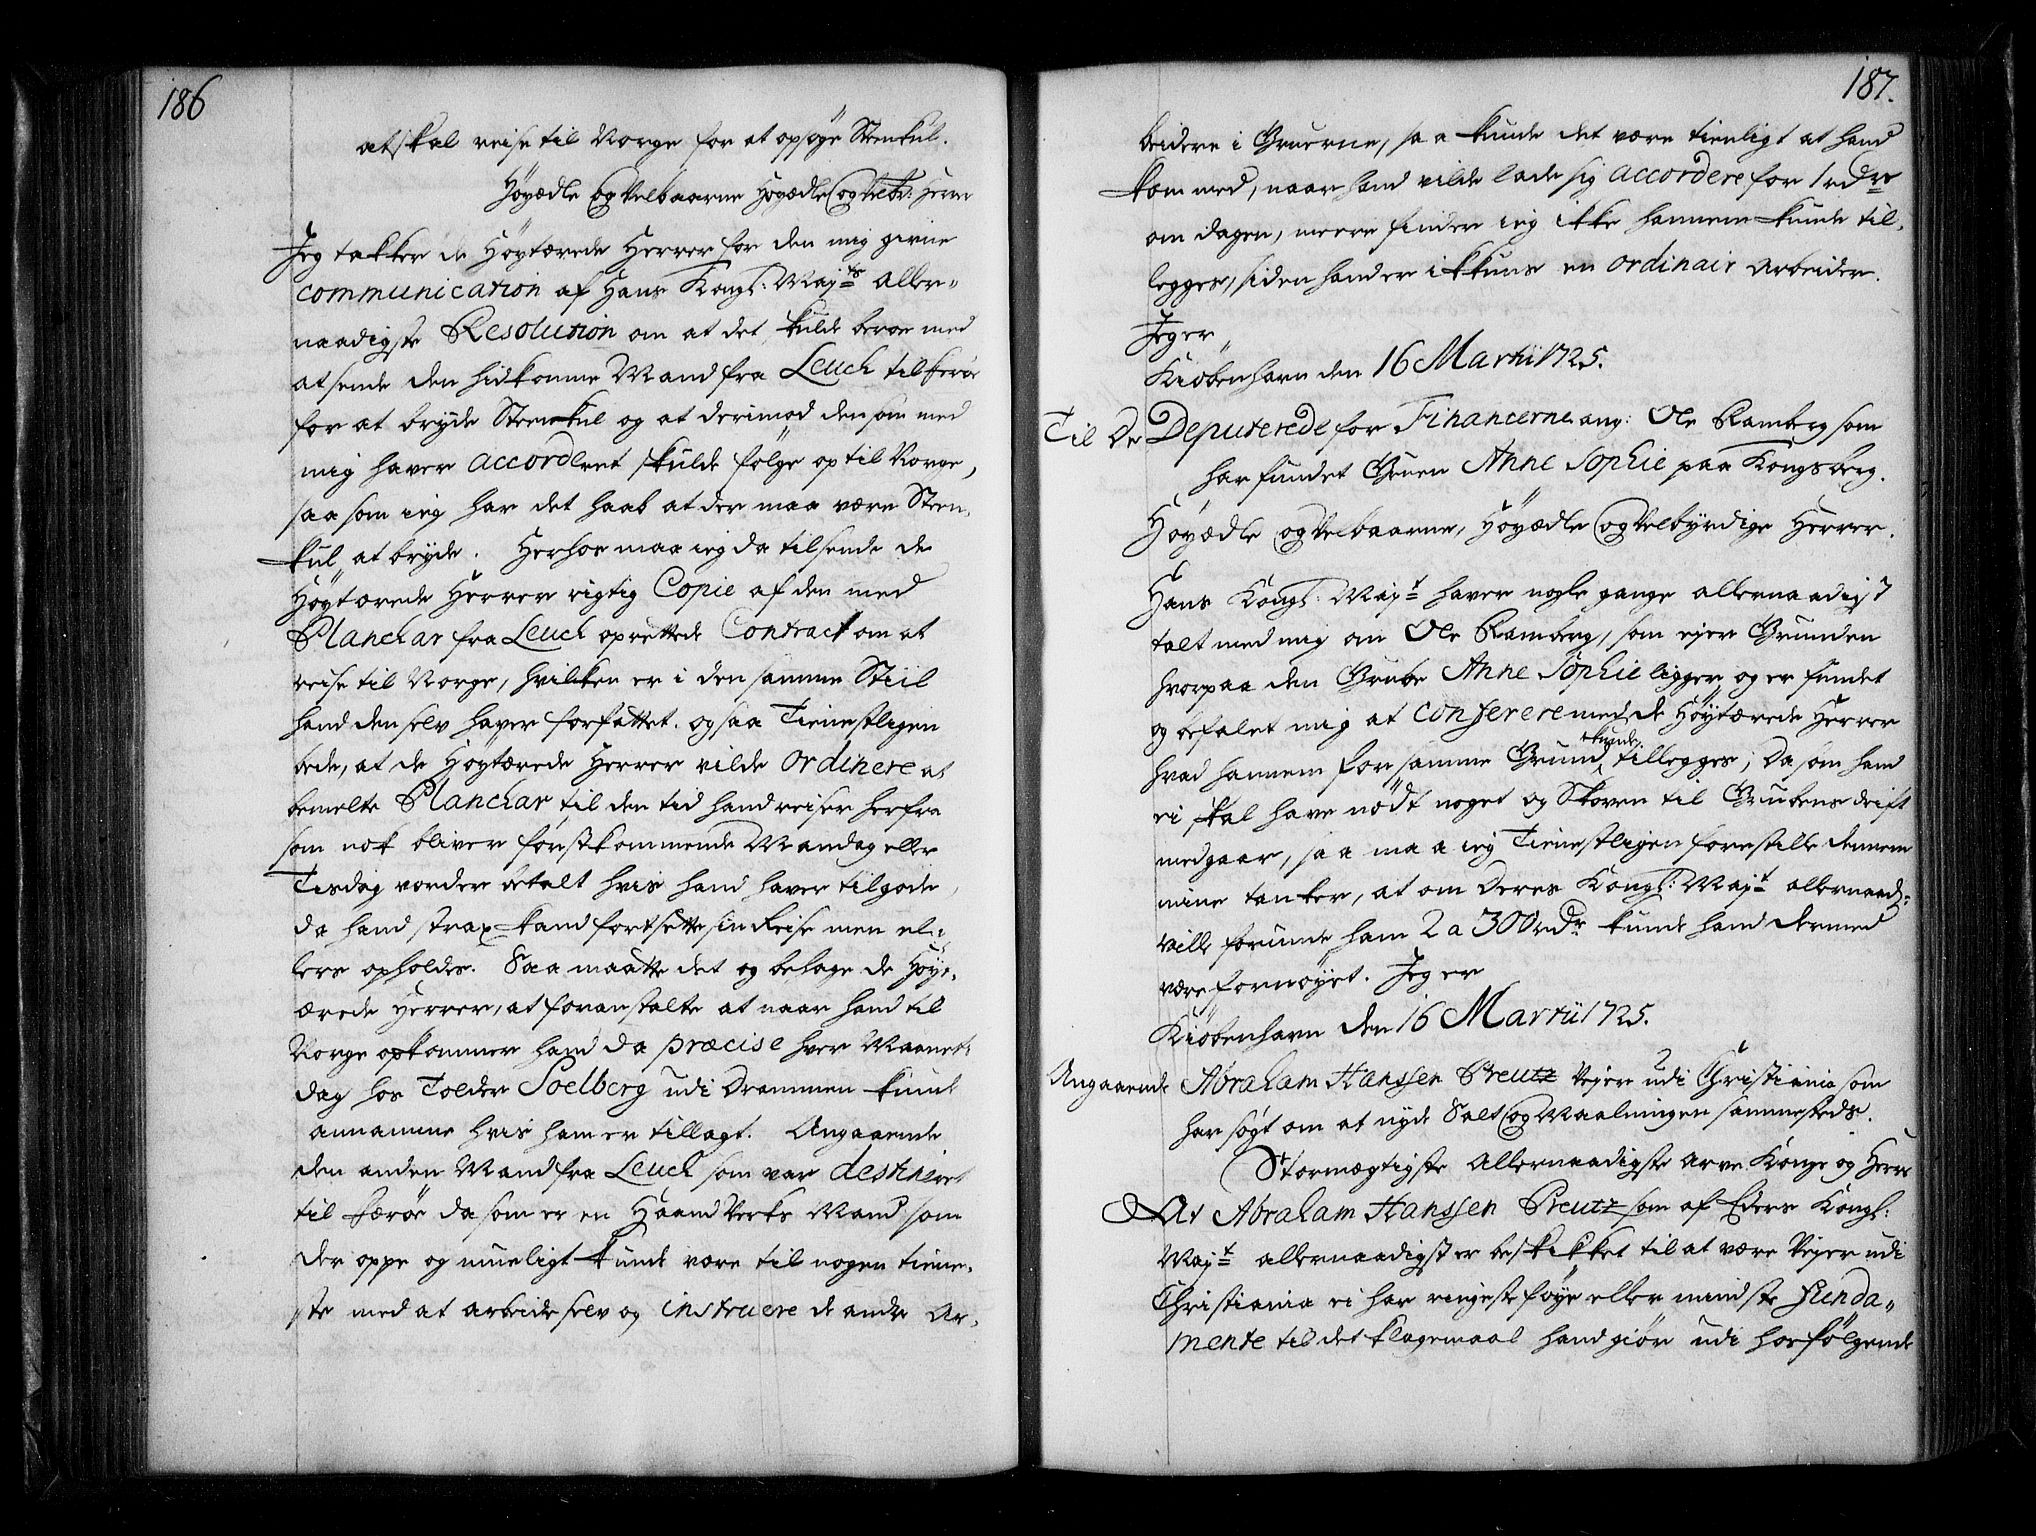 186
at skal reise til Norge for at opsøge Steenkul.
Höyædle og Velbaarne Höyædle og Velb: Herrer
Jeg takker de Höytærede Herrer for den mig givne
communication af Hans Kongl: Maj:ts aller-
naadigste Resolution om at det skulde beroe med
at sende den hidkomne Mand fra Leuch til Færøe
for at bryde Steenkul og at derimod den som med
mig haver accorderet skulde følge op til Norge,
saa som ieg har det haab at der maa være Steen-
kul at bryde. Herhos maa ieg da tilsende de
Höytærede Herrer rigtig Copie af den med
Planchar fra Leuch oprettede Contract om at
reise til Norge, hvilken er i den samme Stiil
hand den selv haver forfattet. og saa Tienestligen
bede, at de Höytærede Herrer vilde ordinere at
bemelte Planchar til den tid hand reiser herfra
som nok bliver førstkommende Mandag eller
Tisdag vorder betalt hvis hand haver tilgode,
da hand strax kand fortsette sin Reise men el-
lers opholdes. Saa maatte det og behage de Höyt-
ærede Herrer, at foranstalte at naar hand til
Norge opkommer hand da præcise hver Maanets
dag hos Tolder Soelberg udi Drammen kunde
annamme hvis ham er tillagt. Angaaende
den anden Mand fra Leuch som var destineret
til Færøe da som er en Haand Verks Mand som
der oppe og mueligt kunde være til nogen tiene-
ste med at arbeide selv og instruere de andre Ar-
187.
beidere i Gruerne, saa kunde det være tienligt at hand
kom med, naar hand vilde lade sig accordere for 1 rdr
om dagen, meere finder ieg ikke hannem kunde til-
legges, siden hand er ikkuns en ordinair Arbeider.
Jeg er
Kiøbenhavn den 16 Martii 1725.
Til De Deputerede for Financerne ang: Ole Ramberg som
har fundet Gruen Anne Sophie paa Kongsberg.
Höyædle og Velbaarne, Höyædle og Velbyrdige Herrer.
Hans Kongl: Maj:t haver nogle gange allernaadigst
talt med mig om Ole Ramberg, som ejer Grunden
hvorpaa den Grube Anne Sophie ligger og er fundet
og befalet mig at conferere med de Höytærede Herrer
kunde
hvad hannem for samme Grund tillegges; da som hand
ei skal have nödt noget og Skoven til Grubens drift
medgaar, saa maa ieg Tienestligen forestille dennem
mine tanker, at om Deres Kongl: Maj:t allernaadi-
ville forunde ham 2 a 300 rdr kunde hand dermed
være fornøyet. Jeg er
Kiöbenhavn den 16 Martii 1725.
Angaaende Abraham Hanssen Preutz Vejer udi Christiania som
har søgt om at nyde Salt og Maalningen sammesteds.
Stormægtigste Allernaadigste Arve Konge og Herre
At Abraham Hanssen Preutz som af Eders Kongl:
Maj:t allernaadigst er beskikket til at være Vejer udi
Christiania ei har ringeste føye eller mindste funda-
mente til det klagemaal hand giör udi hosfølgende